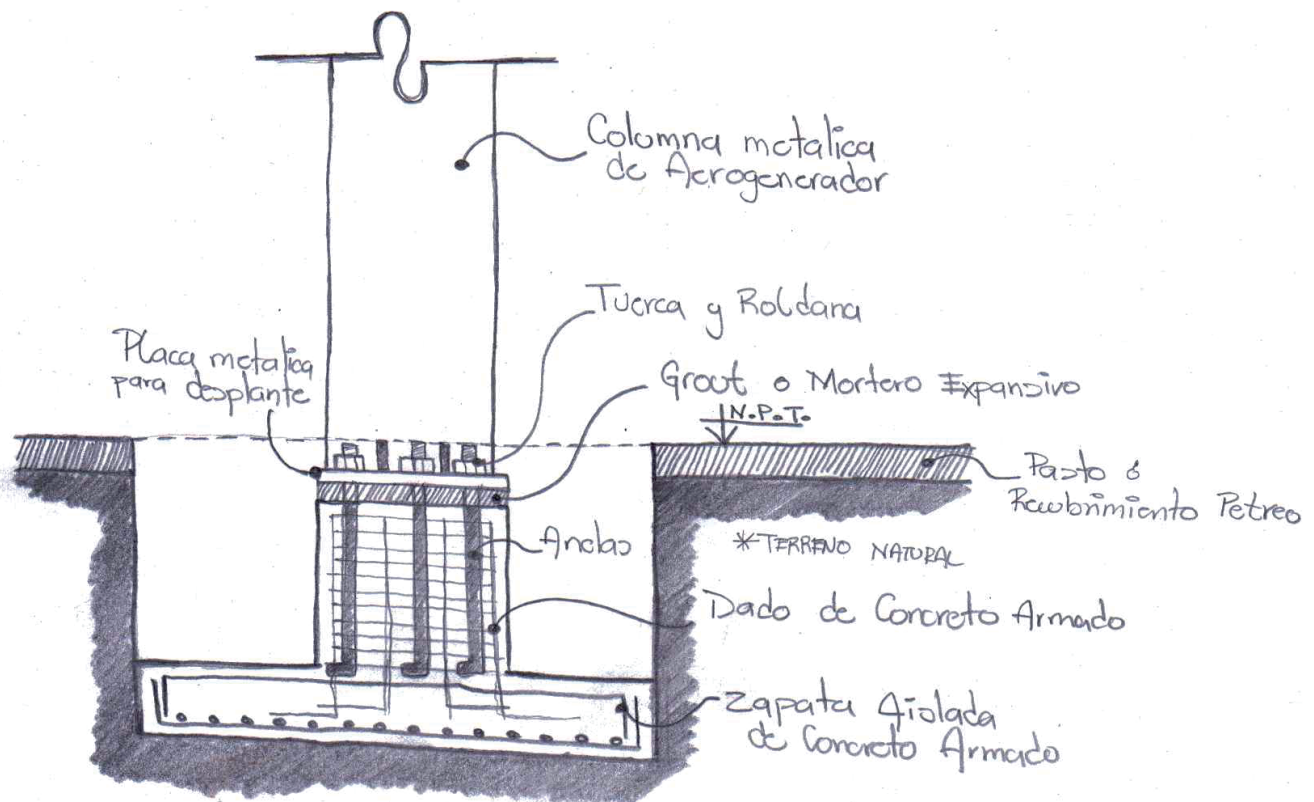 Columna metalica
de Aerogenerador
Tuerca y Roldana
Placa metalica
para desplante
Grout o Mortero Expansivo
N.P.T.
Pasto ó
Recubrimiento Petreo
Anclas
*TERRENO NATURAL
Dado de Concreto Armado
Zapata Aislada
de Concreto Armado